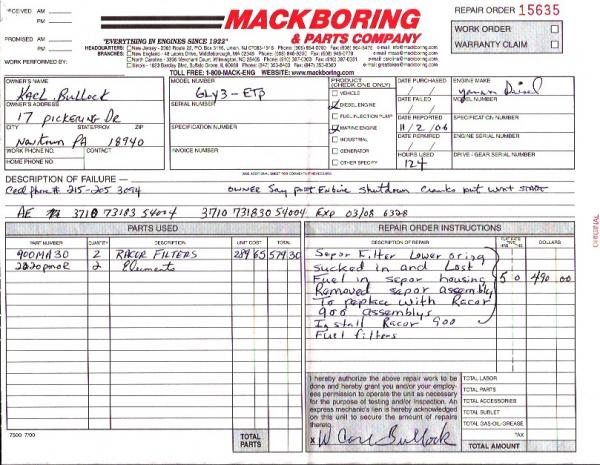 RECEIVED AM
PM
PROMISED AM
PM
WORK PERFORMED BY:
MACKBORING
& PARTS COMPANY
"EVERYTHING IN ENGINES SINCE 1922"
HEADQUARTERS:
BRANCHES:
TOLL FREE: 1-800-MACK-ENG WEBSITE: www.mackboring.com
REPAIR ORDER 15635
WORK ORDER
WARRANTY CLAIM
OWNER'S NAME
Karl Bullock
OWNER'S ADDRESS
17 PICKERING DR
CITY STATE/PROV ZIP
Newtown PA 18940
WORK PHONE NO. CONTACT
HOME PHONE NO.
MODEL NUMBER
6LY3-ETP
SERIAL NUMBER
SPECIFICATION NUMBER
INVOICE NUMBER
PRODUCT
(CHECK ONE ONLY)
VEHICLE
DIESEL ENGINE
FUEL INJECTION PUMP
MARINE ENGINE
INDUSTRIAL
GENERATOR
OTHER SPECIFY
DATE PURCHASED
DATE FAILED
DATE REPORTED
11/2/06
DATE REPAIRED
HOURS USED
124
ENGINE MAKE
yanmar Diesel
MODEL NUMBER
SPECIFICATION NUMBER
ENGINE SERIAL NUMBER
DRIVE / GEAR SERIAL NUMBER
DESCRIPTION OF FAILURE —
Cell phone # 215-205 3094 owner Say port Engine shutdown cranks but wont START
AE 3710 73183 54004 3710 731830 54004 Exp 03/08 6328
PARTS USED
PART NUMBER QUANTITY DESCRIPTION UNIT COST TOTAL
900MA30 2 RACOR FILTERS 289 65 579 30
2020PMOR 2 Elements
REPAIR ORDER INSTRUCTIONS
DESCRIPTION OF REPAIR DOLLARS
Sepor Filter Lower oring
sucked in and Lost
Fuel in sepor housing 5 0 490 00
Removed sapor assembly
To replace with Racor
900 assemblys
Install Racor 900
Fuel filters
I hereby authorize the above repair work to be
done and hereby grant you and/or your employ-
ees permission to operate the unit as necessary
for the purpose of testing and/or inspection. An
express mechanic's lien is hereby acknowledged
on this unit to secure the amount of repairs
thereto.
x W Carl Bullock
TOTAL LABOR
TOTAL PARTS
TOTAL ACCESSORIES
TOTAL SUBLET
TOTAL GAS-OIL-GREASE
TAX
TOTAL AMOUNT
TOTAL
PARTS
7500 7/00
ORIGINAL